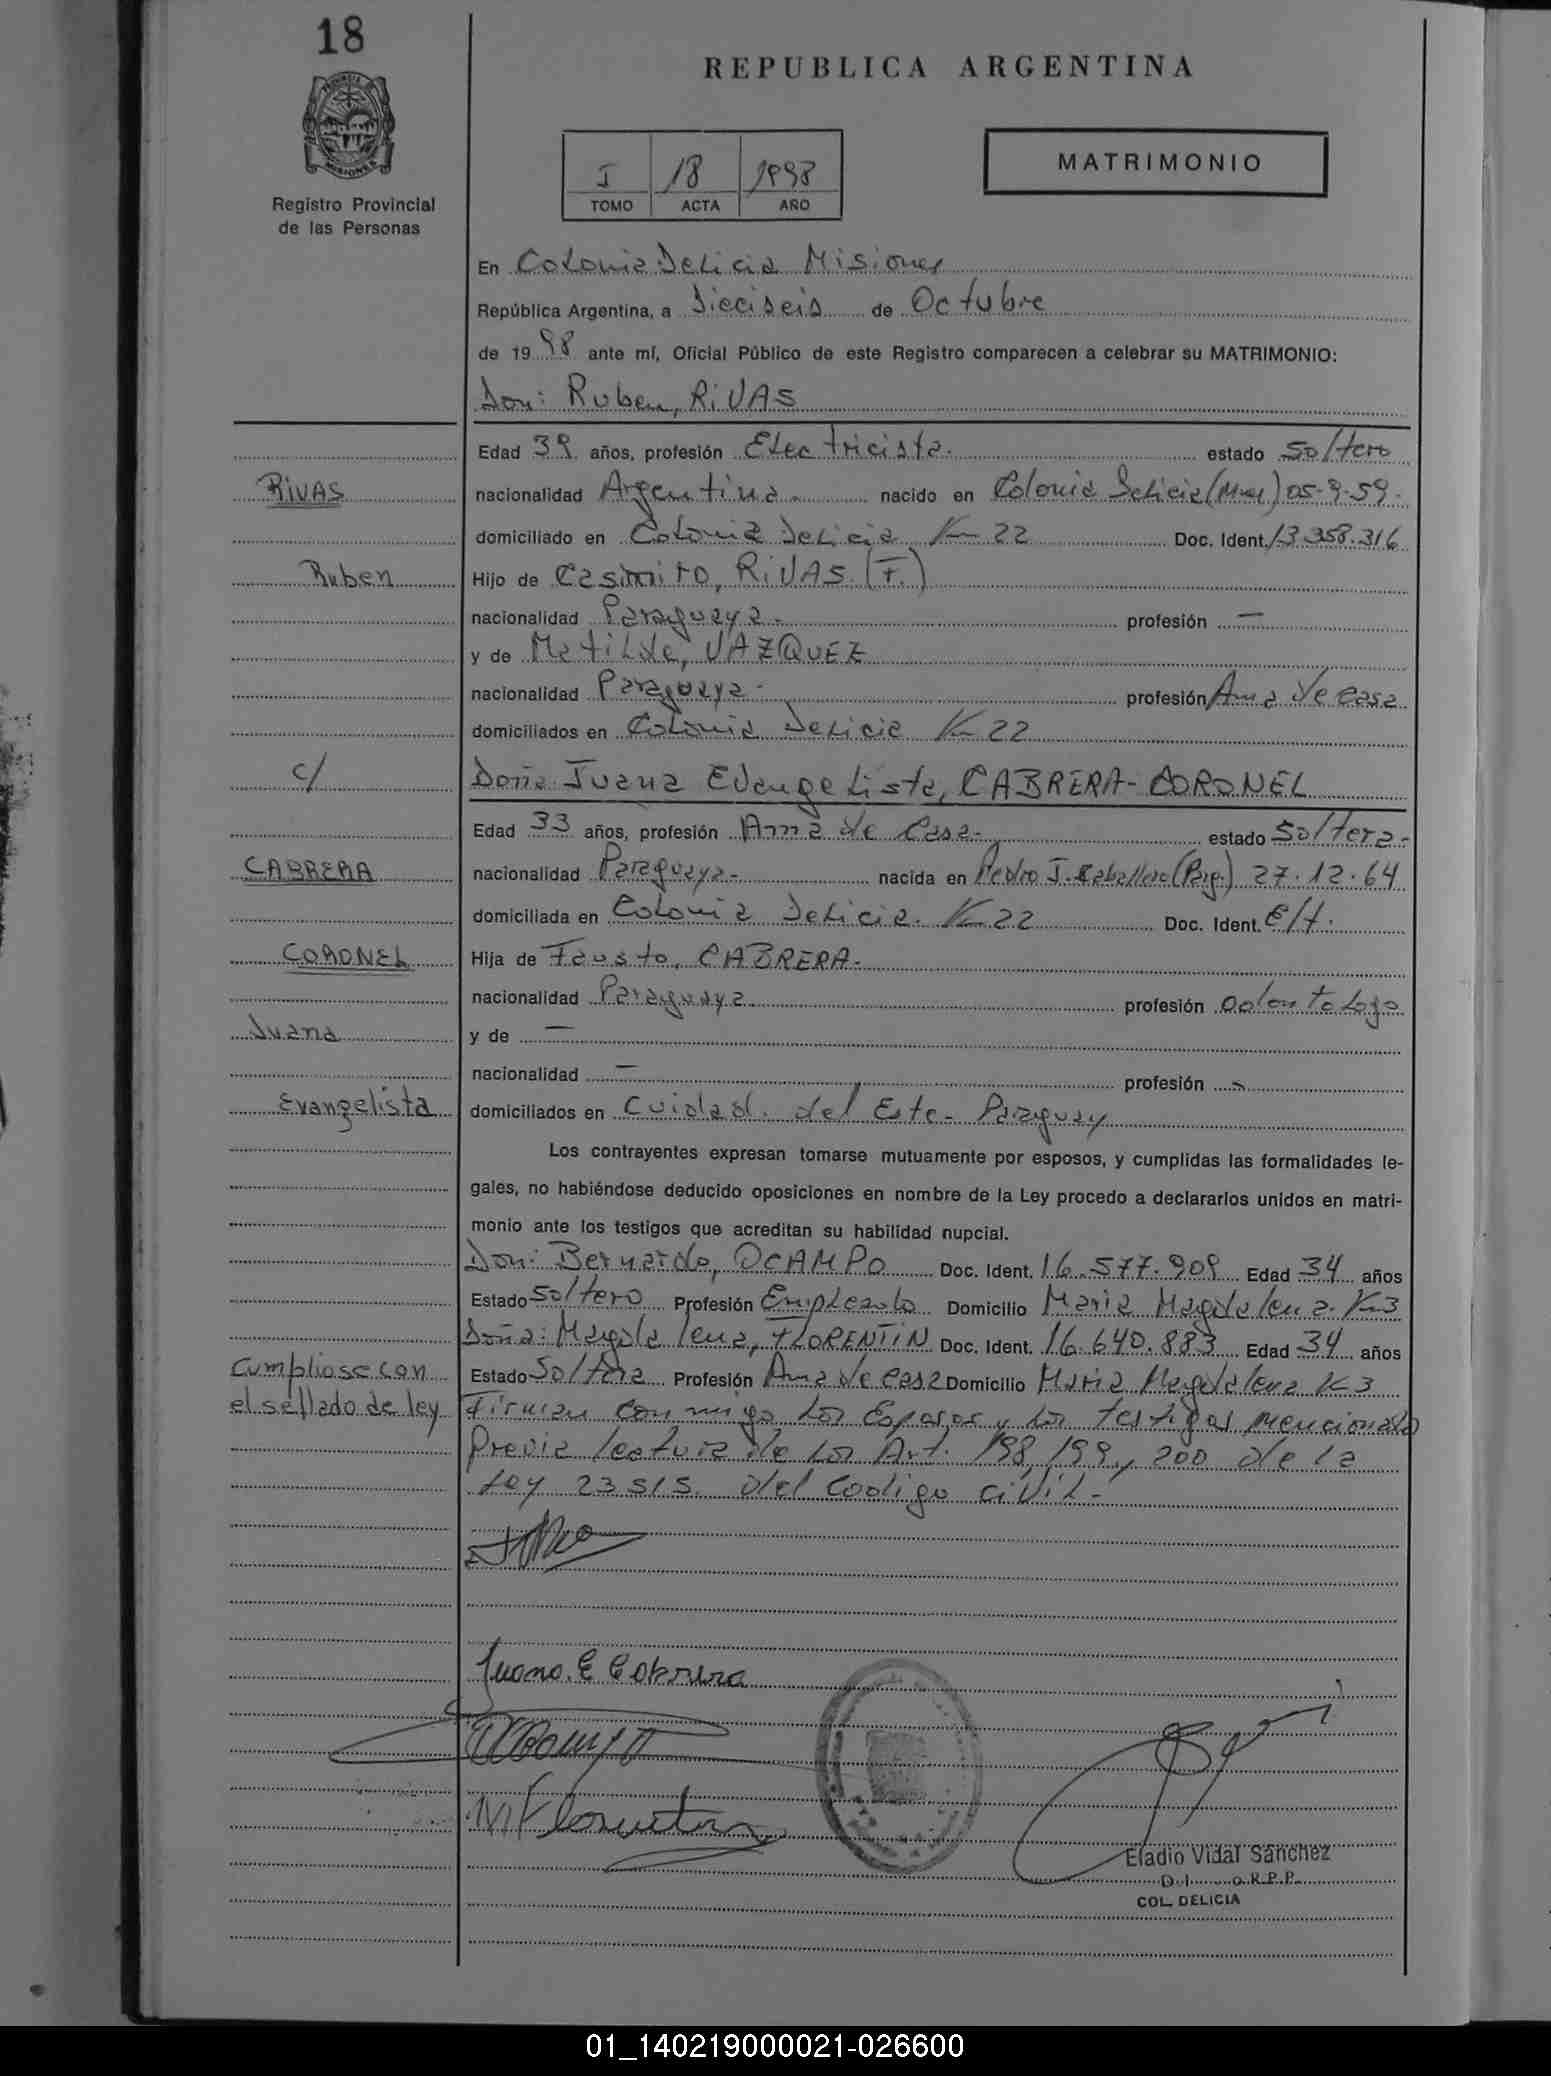 18
REPUBLICA ARGENTINA
PROVINCIA
MISIONES
Registro Provincial
de las Personas
I 18 1998
TOMO ACTA AÑO
MATRIMONIO
En Colonia Delicia Misiones
República Argentina, a Dieciseis de Octubre
de 19 98 ante mí, Oficial Público de este Registro comparecen a celebrar su MATRIMONIO:
Don: Ruben, RIVAS
Edad 39 años, profesión Electricista. estado Soltero
RIVAS
nacionalidad Argentina. nacido en Colonia Delicia (Mnes) 05-9-59.
domiciliado en Colonia Delicia Km 22 Doc. Ident. 13.358.316
Ruben
Hijo de Casimiro, RIVAS (F.)
nacionalidad Paraguaya. profesión —
y de Matilde, VAZQUEZ
nacionalidad Paraguaya. profesión Ama de Casa
domiciliados en Colonia Delicia Km 22
c/
Doña Juana Evangelista, CABRERA-CORONEL
Edad 33 años, profesión Ama de Casa- estado Soltera-
CABRERA
nacionalidad Paraguaya- nacida en Pedro J. Caballero (Pag.) 27.12.64
domiciliada en Colonia Delicia. Km 22 Doc. Ident. E/t.
CORONEL
Hija de Fausto, CABRERA-
nacionalidad Paraguaya profesión Odontologo
Juana
y de —
nacionalidad — profesión -
Evangelista
domiciliados en Cuidad. del Este- Paraguay
Los contrayentes expresan tomarse mutuamente por esposos, y cumplidas las formalidades le-
gales, no habiéndose deducido oposiciones en nombre de la Ley procedo a declararlos unidos en matri-
monio ante los testigos que acreditan su habilidad nupcial.
Don: Bernardo, OCAMPO Doc. Ident. 16.577.909 Edad 34 años
Estado Soltero Profesión Empleado Domicilio Maria Magdalena. Km3
Doña: Magdalena, FLORENTIN Doc. Ident. 16.640.883 Edad 34 años
Cumpliose con
el sellado de ley
Estado Soltera Profesión Ama de Casa Domicilio Maria Magdalena K3
Firman conmigo los Esposos y los testigos mencionado
Previa lectura de los Art. 198, 199, 200 de la
Ley 23515. del Codigo civil-
Juana. E Cabrera
M Florentin
Eladio Vidal Sánchez
R.P.P.
COL. DELICIA
01_140219000021-026600